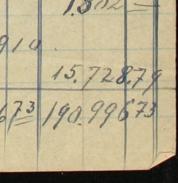 1.382
910
15.728.79
673 190.99673